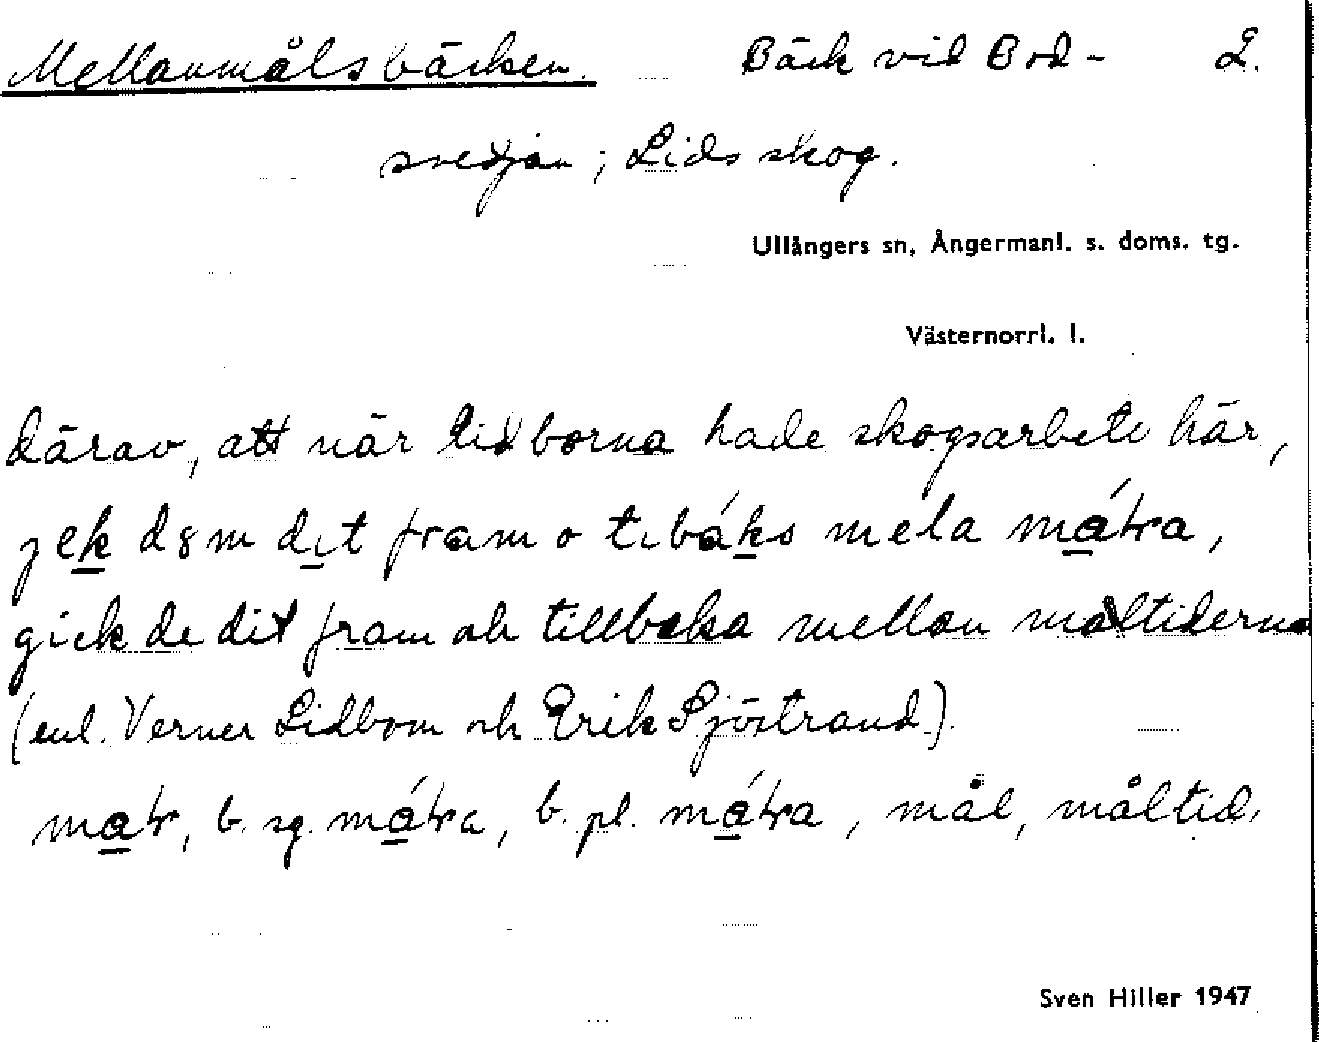 Mellanmålsbäcken. Bäck vid Bod- 2.
svedjan; Lids skog.
Ullångers sn, Ångermanl. s. doms. tg.
Västernorrl. l.
därav, att när lidborna hade skogsarbete här,
fram o mela
gick de dit fram och tillbaka mellan måltiderna
(enl. Verner Lidbom och Erik Sjöstrand).
b. sg. b. pl. mål, måltid.
Sven Hiller 1947